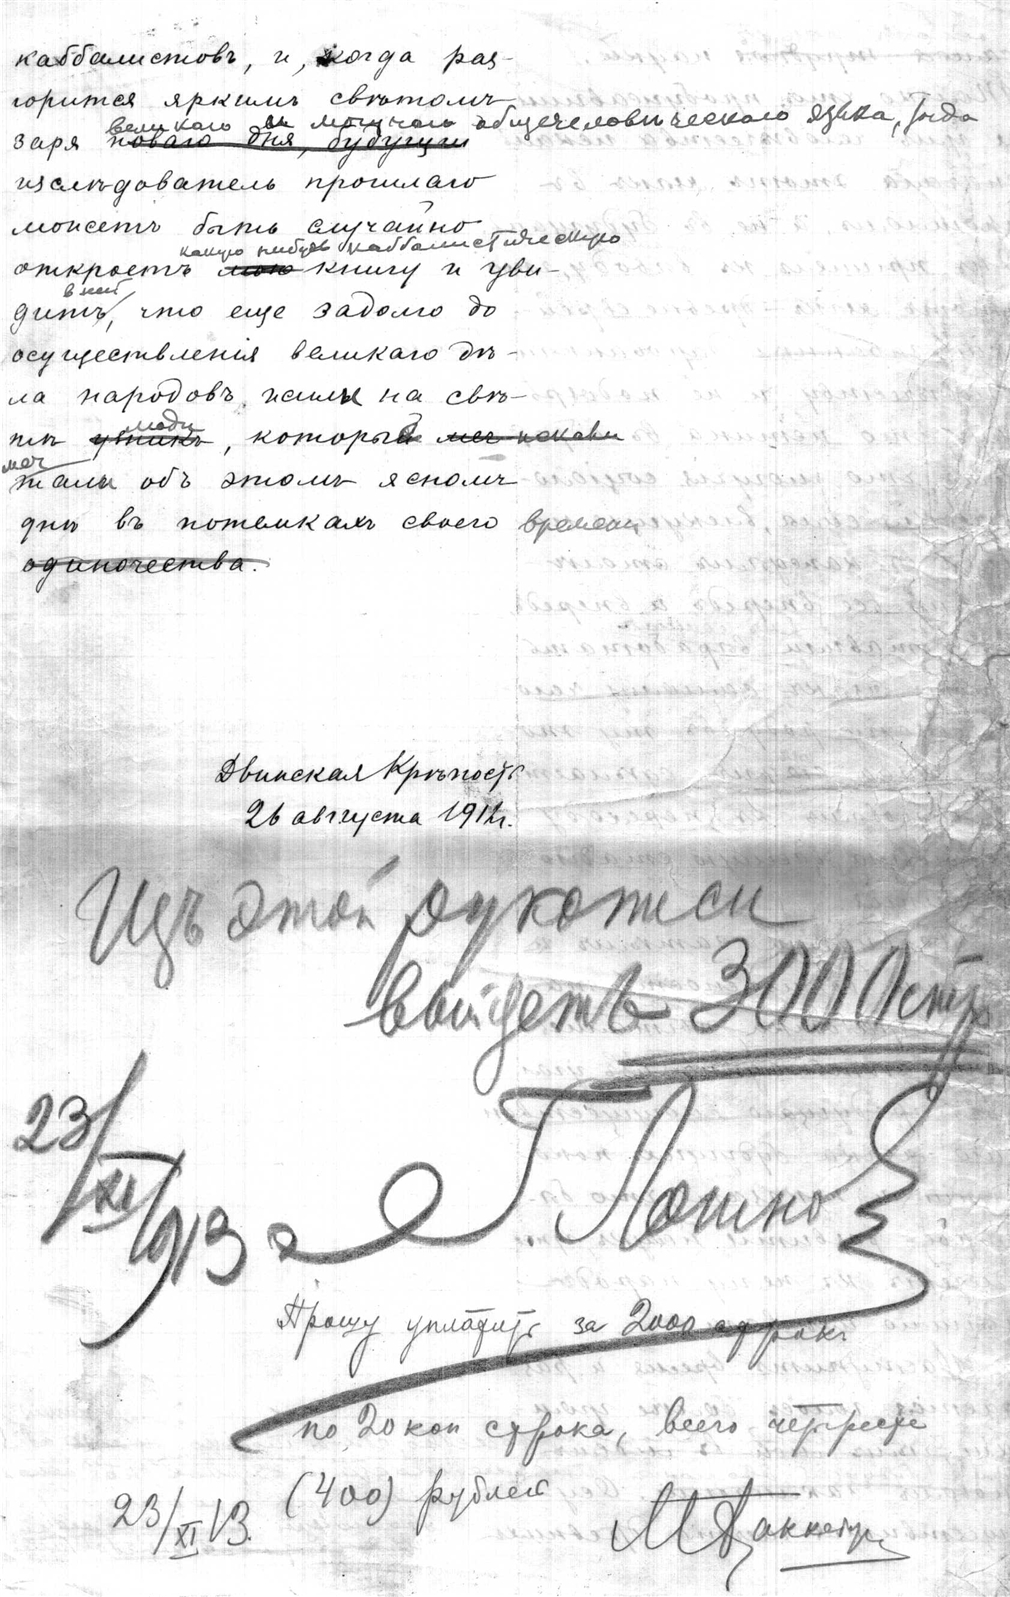 каббалистовъ, и, когда раз-
горится яркимъ свѣтомъ
великаго и могучаго общечеловѣческаго языка, тогда
заря новаго дня, будущій
изслѣдователь прошлаго
можетъ быть случайно
какую нибудь каббалистическую
откроетъ мою книгу и уви-
в ней
дитъ, что еще задолго до
осуществленія великаго дѣ-
ла народовъ жили на свѣ-
люди
тѣ узникъ, который
меч
тали объ этомъ ясномъ
днѣ въ потемкахъ своего времени
одиночества.
Двинская Крѣпость
26 августа 1912 г.
Изъ этой рукописи
выйдетъ 3000 стр
23/XI 1913
Прошу уплатить за 2000 строкъ
по 20 коп строка, всего четыреста
(400) рублей
23/XI 13.